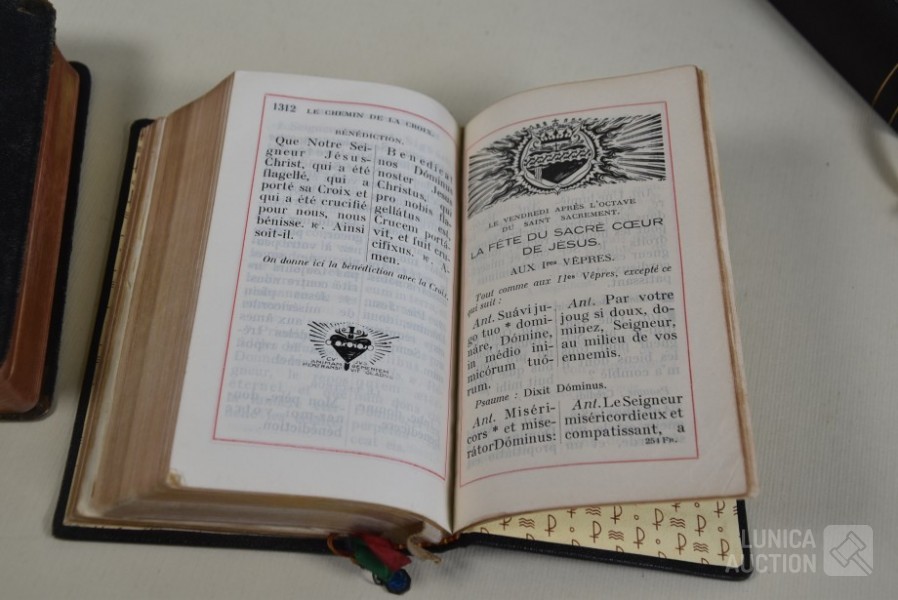 1312 LE CHEMIN DE LA CROIX.
BÉNÉDICTION.
Que Notre Sei-
gneur Jésus-
Christ, qui a été
flagellé, qui a
porté sa Croix et
qui a été crucifié
pour nous, nous
bénisse. ℟. Ainsi
soit-il.
Benedícat
nos Dóminus
noster Jesus
Christus,
pro nobis fla-
gellátus est,
Crucem portá-
vit, et fuit cru-
cifixus. ℟. A-
men.
On donne ici la bénédiction avec la Croix.
LE VENDREDI APRÈS L'OCTAVE
DU SAINT SACREMENT.
LA FÊTE DU SACRÉ CŒUR
DE JÉSUS.
AUX Ires VÊPRES.
Tout comme aux IIes Vêpres, excepté ce
qui suit :
Ant. Suávi ju-
go tuo * domi-
náre, Dómine,
in médio ini-
micórum tuó-
rum.
Ant. Par votre
joug si doux, do-
minez, Seigneur,
au milieu de vos
ennemis.
Psaume : Dixit Dóminus.
Ant. Miséri-
cors * et mise-
rátor Dóminus:
Ant. Le Seigneur
miséricordieux et
compatissant, a
254 Fr.
LUNICA
AUCTION